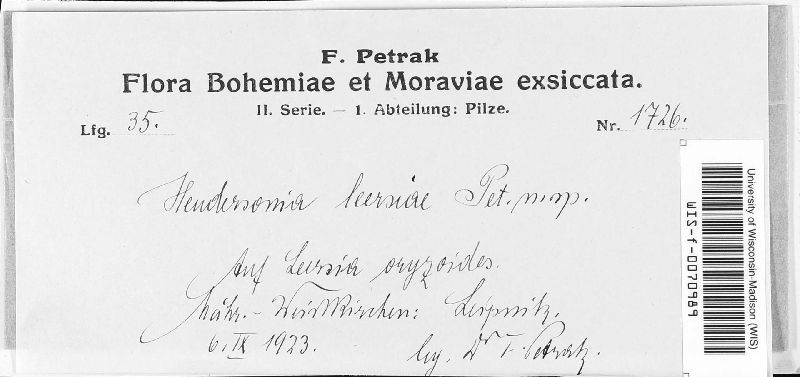 F. Petrak
Flora Bohemiae et Moraviae exsiccata.
II. Serie. — 1. Abteilung: Pilze.
Lfg. 35. Nr. 1726.
Hendersonia leersiae Pet. n. sp.
Auf Leersia oryzoides.
Mähr.-Weisskirchen: Leipnitz.
6. IX 1923. leg. Dr F. Petrak.
University of Wisconsin-Madison (WIS)
WIS-f-0070989